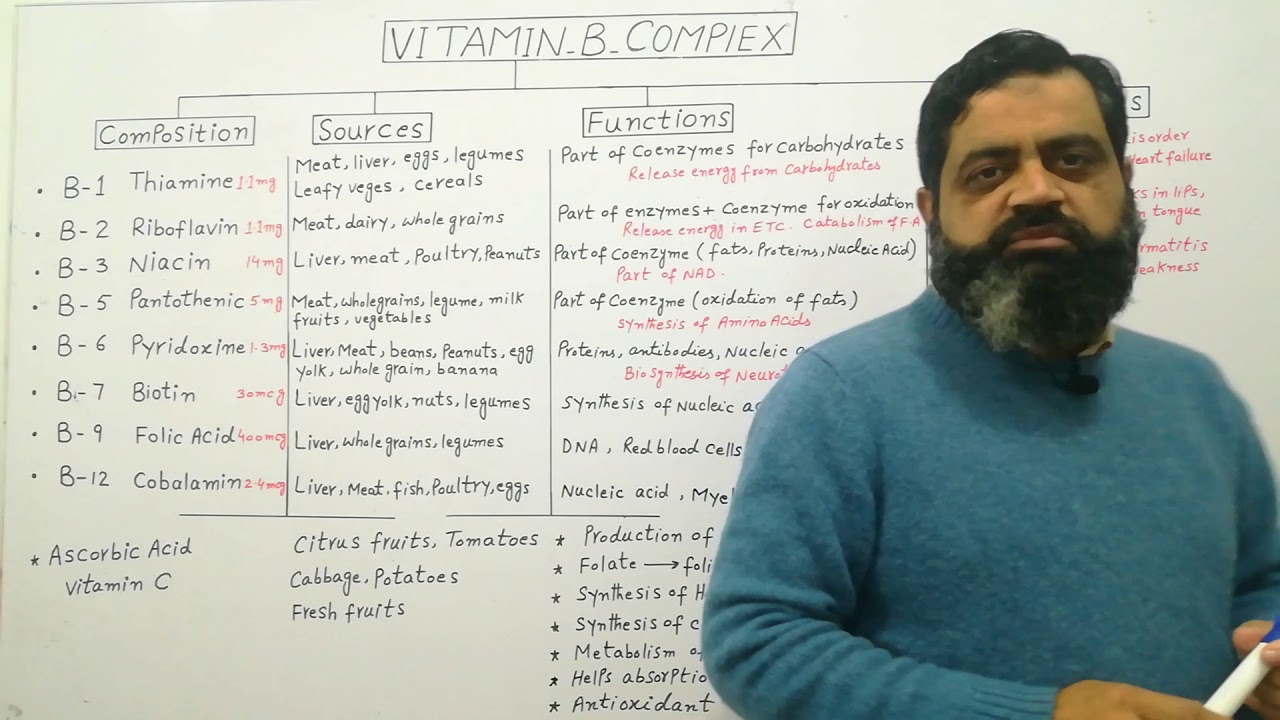 VITAMIN-B-COMPlEX
Composition
Sources
Functions
S
• B-1 Thiamine 1.1mg
Meat, liver, eggs, legumes
Leafy veges, cereals
Part of Coenzymes for Carbohydrates
Release energy from Carbohydrates
Heart failure
• B-2 Riboflavin 1.1mg
Meat, dairy, whole grains
Part of enzymes + Coenzyme for oxidation
Release energy in ETC. Catabolism of F.A
in lips,
tongue
• B-3 Niacin 14mg
Liver, meat, Poultry, Peanuts
Part of Coenzyme (fats, Proteins, Nucleic Acid)
Part of NAD.
• B-5 Pantothenic 5mg
Meat, wholegrains, legume, milk
fruits, vegetables
Part of Coenzyme (oxidation of fats)
Synthesis of Amino Acids
• B-6 Pyridoxine 1.3mg
Liver, Meat, beans, Peanuts, egg
yolk, whole grain, banana
Proteins, antibodies, Nucleic
BioSynthesis of
• B-7 Biotin 30mcg
Liver, egg yolk, nuts, legumes
Synthesis of Nucleic
• B-9 Folic Acid 400mcg
Liver, whole grains, legumes
DNA, Red blood Cells
• B-12 Cobalamin 2.4mg
Liver, Meat, fish, Poultry, eggs
Nucleic acid,
* Ascorbic Acid
Vitamin C
Citrus fruits, Tomatoes
Cabbage, Potatoes
Fresh fruits
* Production of
* Folate →
* Synthesis of
* Synthesis of
* Metabolism
* Helps
* Antioxidant